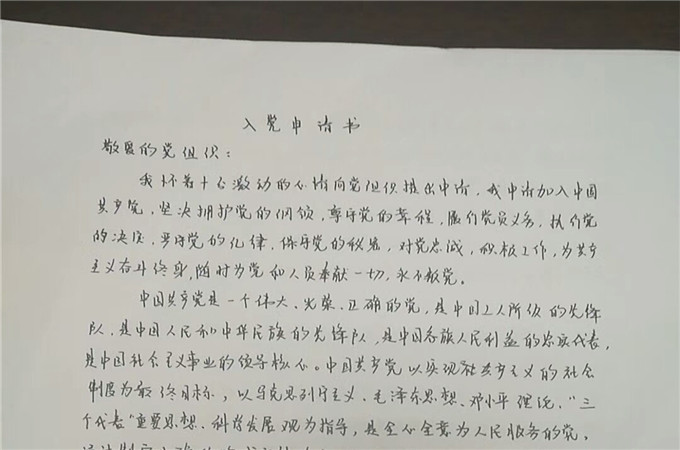 入党申请书
敬爱的党组织：
我怀着十分激动的心情向党组织提出申请，我申请加入中国
共产党，坚决拥护党的纲领，遵守党的章程，履行党员义务，执行党
的决定，严守党的纪律，保守党的秘密，对党忠诚，积极工作，为共产
主义奋斗终身，随时为党和人民奉献一切，永不叛党。
中国共产党是一个伟大、光荣、正确的党，是中国工人阶级的先锋
队，是中国人民和中华民族的先锋队，是中国各族人民利益的忠实代表，
是中国社会主义事业的领导核心。中国共产党以实现共产主义的社会
制度为最终目标，以马克思列宁主义、毛泽东思想、邓小平理论、“三
个代表”重要思想、科学发展观为指导，是全心全意为人民服务的党，